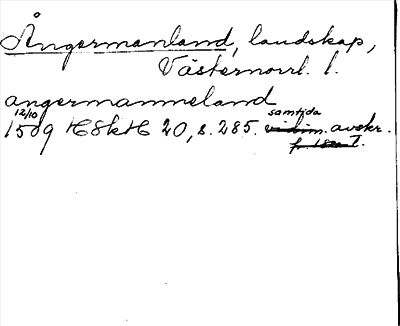 Ångermanland, landskap,
Västernorrl. l.
angermanneland
12/10 samtida
1509 HSkH 20, s. 285. vidim. avskr.